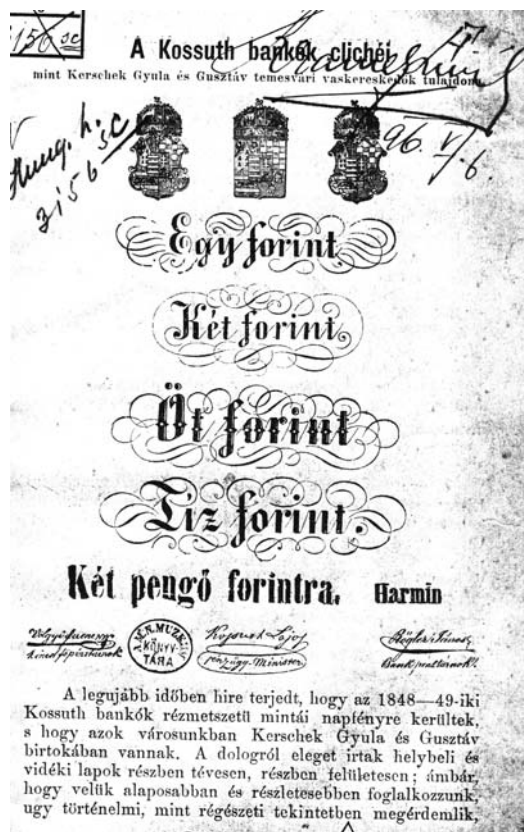 3156 sc
A Kossuth bankók clichéi,
mint Kerschek Gyula és Gusztáv temesvári vaskereskedők tulajdona.
Hung. h.
3156 sc
96. V/6.
Egy forint.
Két forint.
Öt forint
Tiz forint.
Két pengő forintra. Harmin
A M. N. MUZ.
KÖNYV-
TÁRA
Kossuth Lajos
pénzügy Minister
A legujább időben hire terjedt, hogy az 1848—49-iki
Kossuth bankók rézmetszetü mintái napfényre kerültek,
s hogy azok városunkban Kerschek Gyula és Gusztáv
birtokában vannak. A dologról eleget irtak helybeli és
vidéki lapok részben tévesen, részben felületesen; ámbár,
hogy velük alaposabban és részletesebben foglalkozzunk,
ugy történelmi, mint régészeti tekintetben megérdemlik,